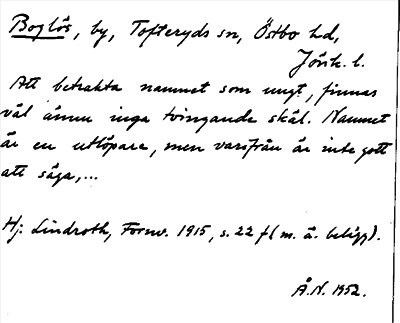 Boglös, by, Tofteryds sn, Östbo hd,
Jönk. l.
Att betrakta namnet som ungt, finnas
väl ännu inga tvingande skäl. Namnet
är en utlöpare, men varifrån är inte gott
att säga,...
Hj: Lindroth, Fornv. 1915, s. 22 f (m. ä. belägg).
Å.N. 1952.